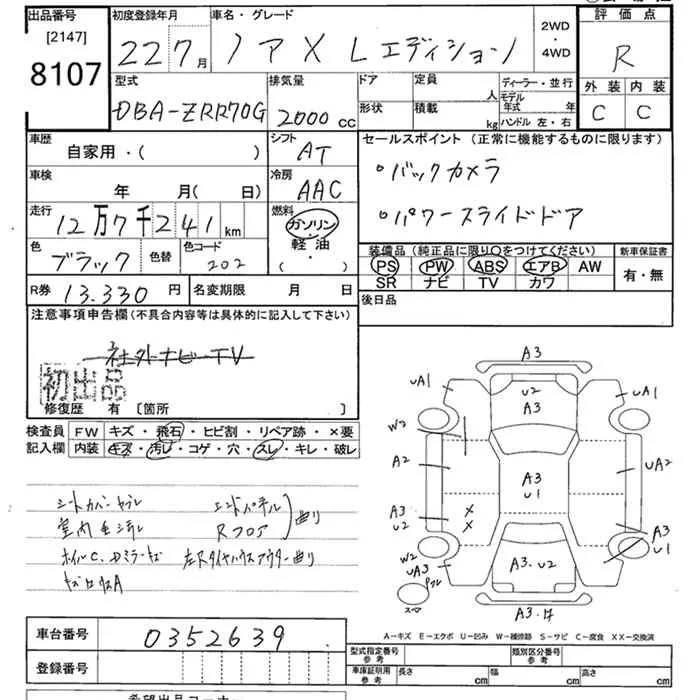 出品番号 初度登録年月 車名・グレード 2WD ・ 4WD 評価点
[2147] 8107 22 7月 ノア X Lエディション R
外装 内装
C C
型式 排気量 ドア 定員 人 ディーラー・並行
DBA-ZRR70G 2000 cc 形状 積載 kg モデル年式 年
ハンドル 左・右
車歴 シフト セールスポイント (正常に機能するものに限ります)
自家用・( ) AT
・バックカメラ
車検 冷房
年 月( 日) AAC
・パワースライドドア
走行 燃料
12万7千241km ガソリン・軽油・( )
色 色替 色コード
ブラック 202
装備品(純正品に限り○をつけてください) 新車保証書
PS PW ABS エアB AW 有・無
SR ナビ TV カワ
R券 13.330円 名変期限 月 日 後日品
注意事項申告欄(不具合内容等は具体的に記入して下さい)
社外ナビ-TV
初出品
修復歴 有 [箇所 ]
検査員 FW キズ・飛石・ヒビ割・リペア跡・×要
記入欄 内装 キズ・汚レ・コゲ・穴・スレ・キレ・破レ
エンドパネル
Rフロア 曲り
A3
UA1 U2 A3 UA1
W2
A2 A3 U1 UA2
A3 U2 × × A3 U1
W2
UA3 A3.U2
A3.
A-キズ E-エクボ U-凹み W-補修跡 S-サビ C-腐食 XX-交換済
車台番号 0352639
登録番号
型式指定番号 参考 類別区分番号 参考
車庫証明用 参考 長さ cm 幅 cm 高さ cm
希望出品コーナー